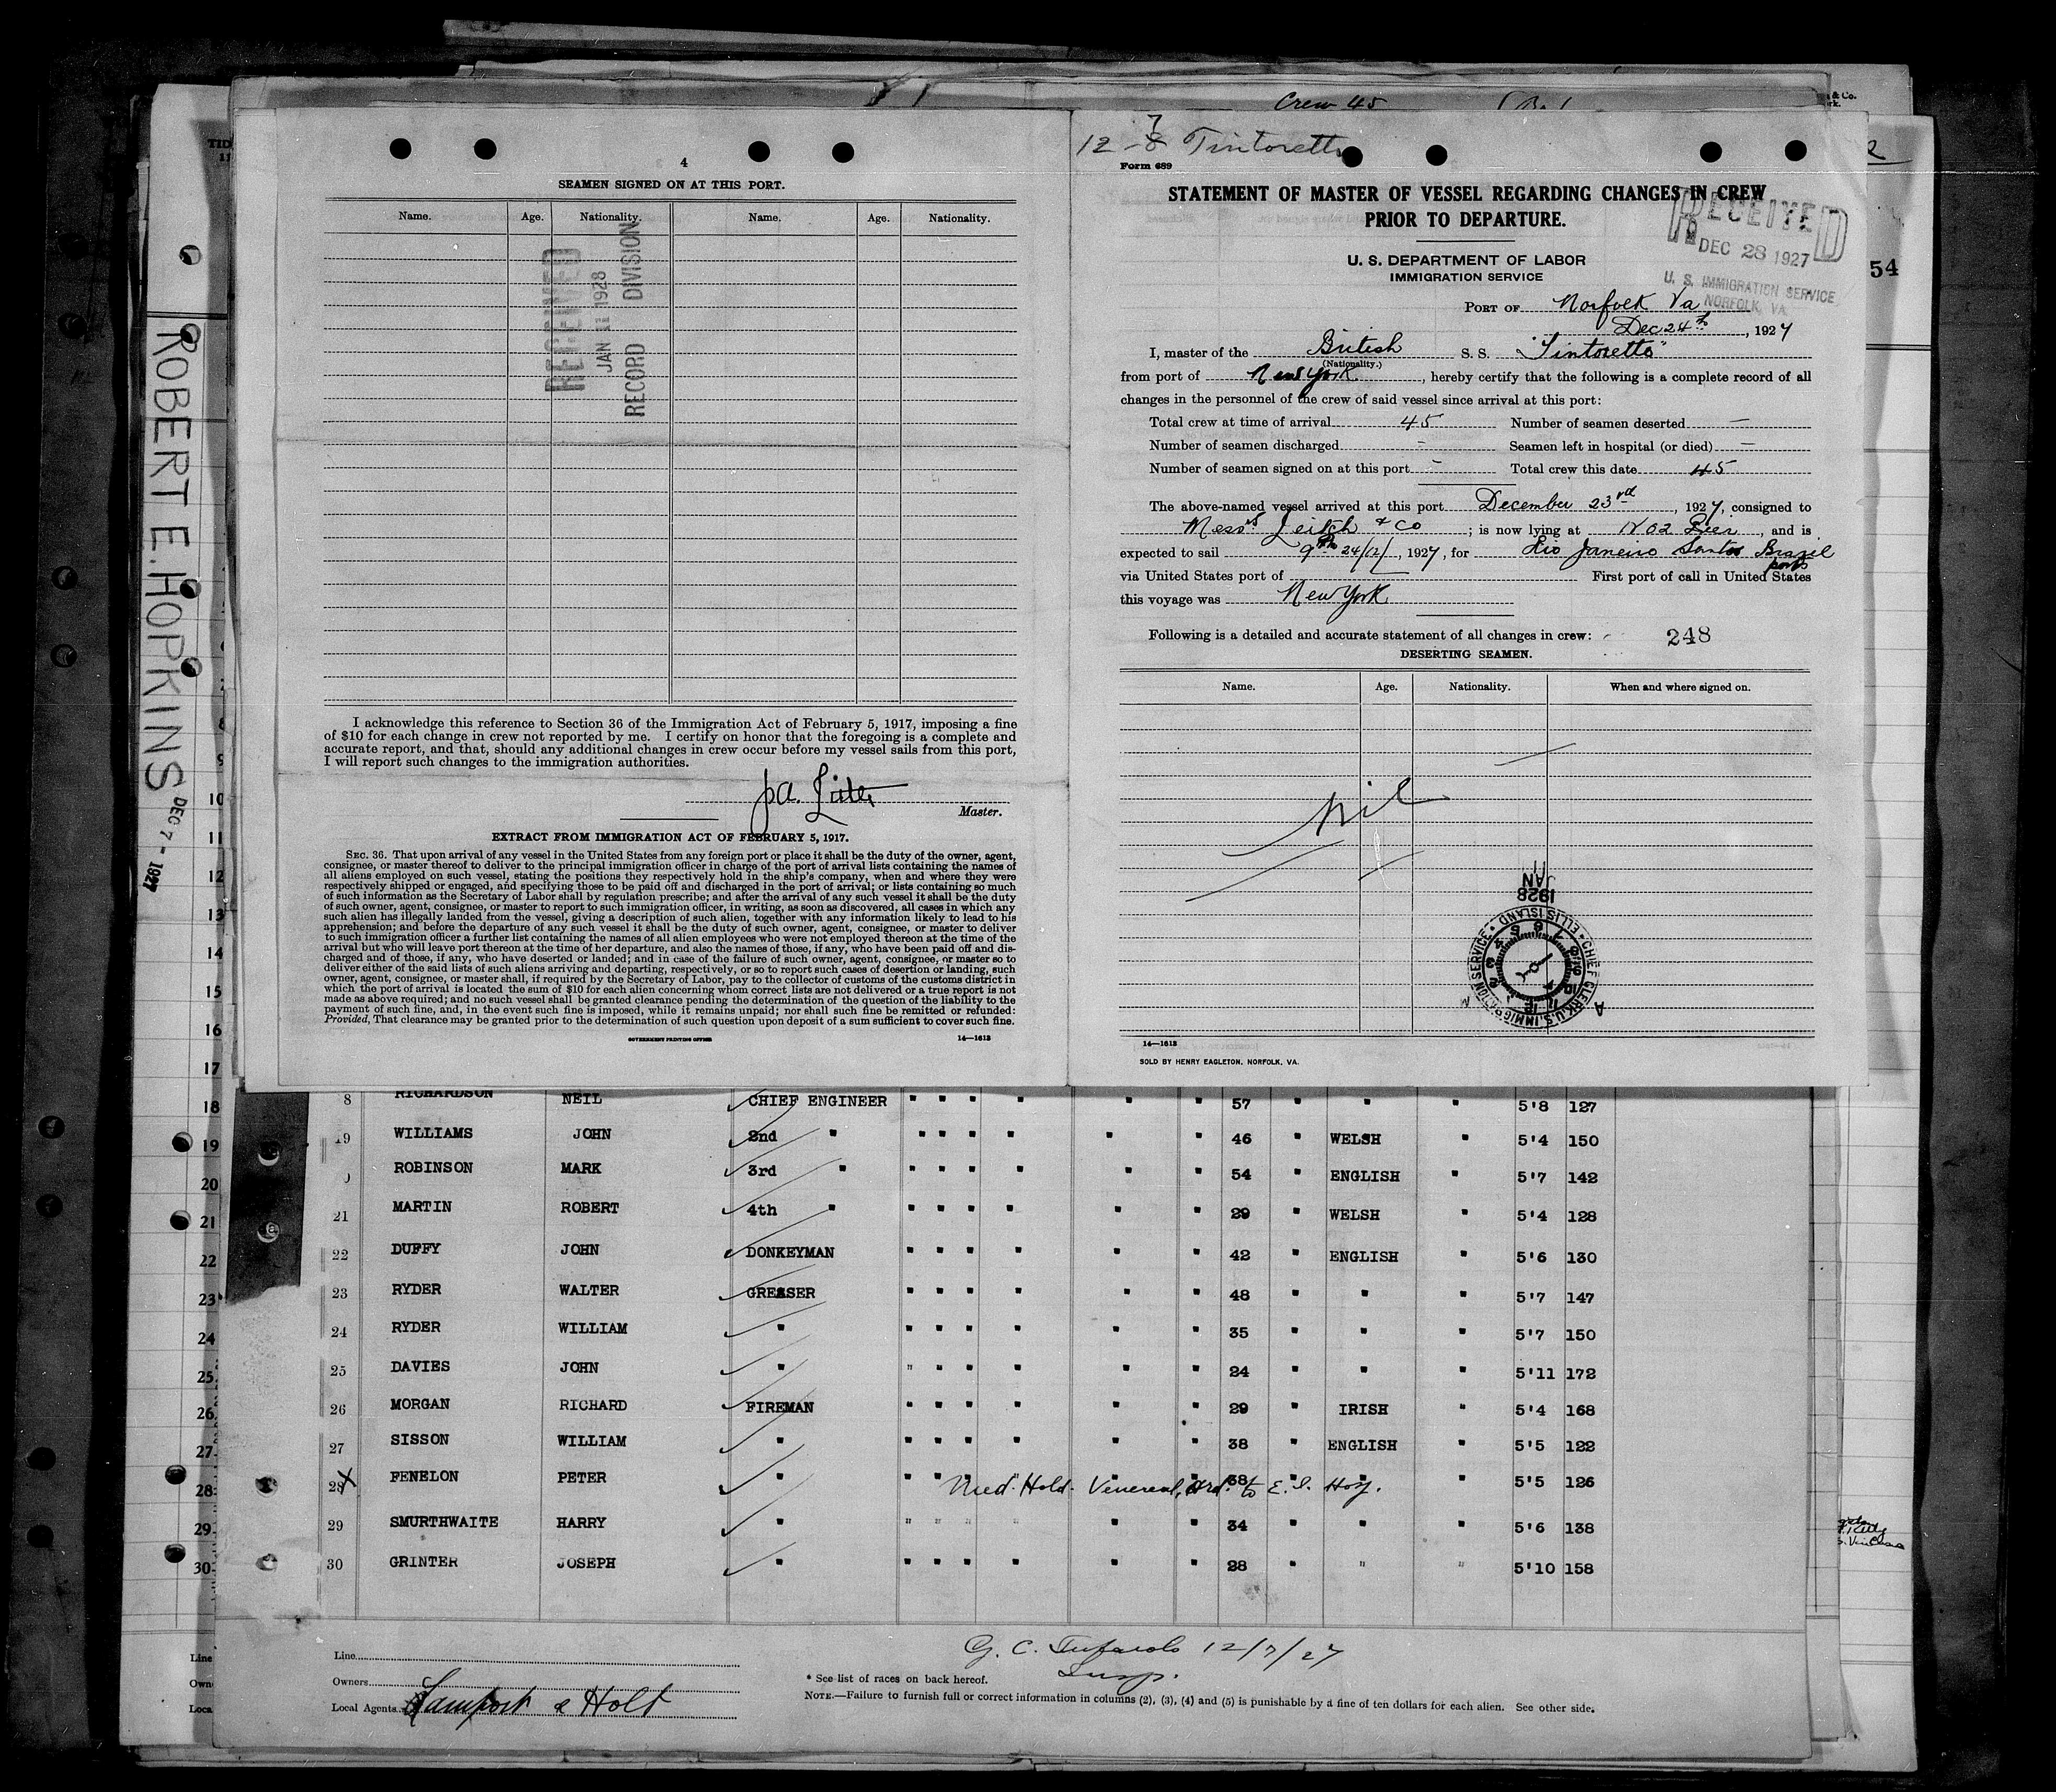 Crew 45
& Co.
54
ROBERT E. HOPKINS DEC 7 - 1927
4
SEAMEN SIGNED ON AT THIS PORT.
Name. Age. Nationality. Name. Age. Nationality.
RECEIVED
JAN 11 1928
RECORD DIVISION
I acknowledge this reference to Section 36 of the Immigration Act of February 5, 1917, imposing a fine
of $10 for each change in crew not reported by me. I certify on honor that the foregoing is a complete and
accurate report, and that, should any additional changes in crew occur before my vessel sails from this port,
I will report such changes to the immigration authorities.
Master.
EXTRACT FROM IMMIGRATION ACT OF FEBRUARY 5, 1917.
SEC. 36. That upon arrival of any vessel in the United States from any foreign port or place it shall be the duty of the owner, agent,
consignee, or master thereof to deliver to the principal immigration officer in charge of the port of arrival lists containing the names of
all aliens employed on such vessel, stating the positions they respectively hold in the ship's company, when and where they were
respectively shipped or engaged, and specifying those to be paid off and discharged in the port of arrival; or lists containing so much
of such information as the Secretary of Labor shall by regulation prescribe; and after the arrival of any such vessel it shall be the duty
of such owner, agent, consignee, or master to report to such immigration officer, in writing, as soon as discovered, all cases in which any
such alien has illegally landed from the vessel, giving a description of such alien, together with any information likely to lead to his
apprehension; and before the departure of any such vessel it shall be the duty of such owner, agent, consignee, or master to deliver
to such immigration officer a further list containing the names of all alien employees who were not employed thereon at the time of the
arrival but who will leave port thereon at the time of her departure, and also the names of those, if any, who have been paid off and dis-
charged and of those, if any, who have deserted or landed; and in case of the failure of such owner, agent, consignee, or master so to
deliver either of the said lists of such aliens arriving and departing, respectively, or so to report such cases of desertion or landing, such
owner, agent, consignee, or master shall, if required by the Secretary of Labor, pay to the collector of customs of the customs district in
which the port of arrival is located the sum of $10 for each alien concerning whom correct lists are not delivered or a true report is not
made as above required; and no such vessel shall be granted clearance pending the determination of the question of the liability to the
payment of such fine, and, in the event such fine is imposed, while it remains unpaid; nor shall such fine be remitted or refunded:
Provided, That clearance may be granted prior to the determination of such question upon deposit of a sum sufficient to cover such fine.
GOVERNMENT PRINTING OFFICE 14—1613
12-7 Tintoretto
Form 689
STATEMENT OF MASTER OF VESSEL REGARDING CHANGES IN CREW
PRIOR TO DEPARTURE.
RECEIVED
DEC 28 1927
U. S. IMMIGRATION SERVICE
NORFOLK, VA.
U. S. DEPARTMENT OF LABOR
IMMIGRATION SERVICE
PORT OF Norfolk Va
Dec 24th, 1927
I, master of the British S. S. "Tintoretto"
(Nationality.)
from port of New York, hereby certify that the following is a complete record of all
changes in the personnel of the crew of said vessel since arrival at this port:
Total crew at time of arrival 45 Number of seamen deserted —
Number of seamen discharged - Seamen left in hospital (or died) —
Number of seamen signed on at this port - Total crew this date 45
The above-named vessel arrived at this port December 23rd, 1927, consigned to
Messrs Leitch & Co; is now lying at No 2 Pier, and is
expected to sail 24/12/, 1927, for Rio Janeiro Santos Brazil ports
via United States port of First port of call in United States
this voyage was New York
Following is a detailed and accurate statement of all changes in crew: 248
DESERTING SEAMEN.
Name. Age. Nationality. When and where signed on.
nil
JAN
1928
CHIEF CLERK, U.S. IMMIGRATION SERVICE • ELLIS ISLAND •
14—1613
SOLD BY HENRY EAGLETON, NORFOLK, VA.
8 RICHARDSON NEIL CHIEF ENGINEER " " " " " " 57 " " " 5'8 127
19 WILLIAMS JOHN 2nd " " " " " " " 46 " WELSH " 5'4 150
ROBINSON MARK 3rd " " " " " " " 54 " ENGLISH " 5'7 142
21 MARTIN ROBERT 4th " " " " " " " 29 " WELSH " 5'4 128
22 DUFFY JOHN DONKEYMAN " " " " " " 42 " ENGLISH " 5'6 130
23 RYDER WALTER GREASER " " " " " " 48 " " " 5'7 147
24 RYDER WILLIAM " " " " " " " 35 " " " 5'7 150
25 DAVIES JOHN " " " " " " " 24 " " " 5'11 172
26 MORGAN RICHARD FIREMAN " " " " " " 29 " IRISH " 5'4 168
27 SISSON WILLIAM " " " " " " " 38 " ENGLISH " 5'5 122
28 FENELON PETER " " " " " " " 38 " " " 5'5 126
Med. Hold - Venereal, Ord. to E. I. Hosp.
29 SMURTHWAITE HARRY " " " " " " " 34 " " " 5'6 138
30 GRINTER JOSEPH " " " " " " " 28 " " " 5'10 158
8
9
10
11
12
13
14
15
16
17
18
19
20
21
22
23
24
25
26
27
28
29
30
Line
Owners
Local Agents Lamport & Holt
12/7/27
Insp.
* See list of races on back hereof.
NOTE.—Failure to furnish full or correct information in columns (2), (3), (4) and (5) is punishable by a fine of ten dollars for each alien. See other side.
Line
Own
Loca